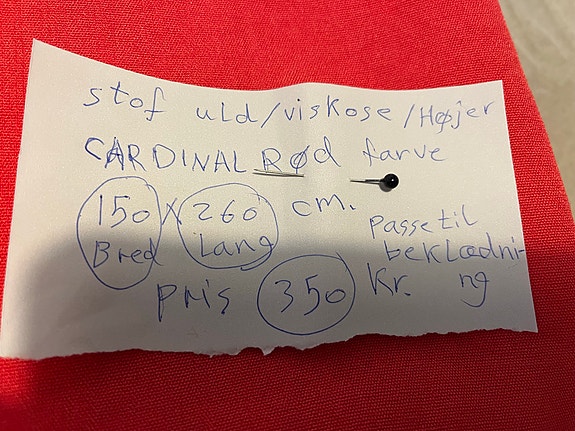 stof uld/viskose/Højer
CARDINAL RØd farve
150 X 260 cm.
Bred Lang
passe til
beklædni-
ng
pris 350 Kr.